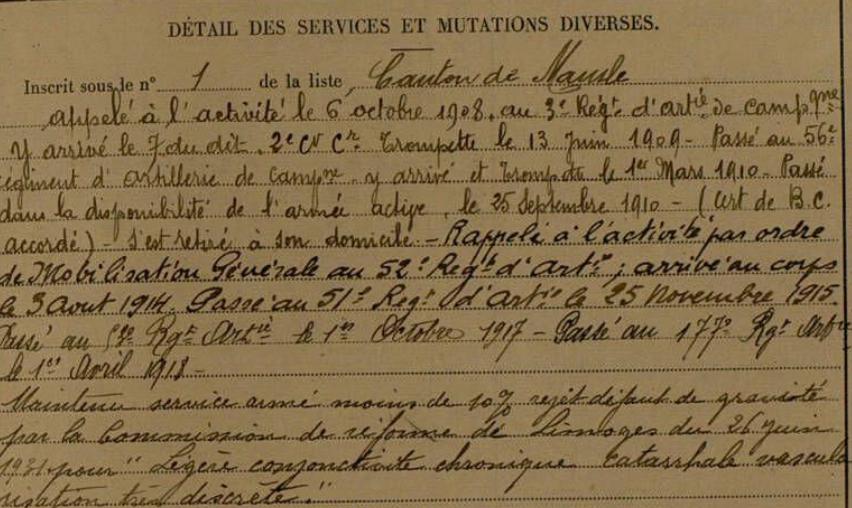 DÉTAIL DES SERVICES ET MUTATIONS DIVERSES.
Inscrit sous le n° 1 de la liste, Canton de Mansle
appelé à l'activité le 6 octobre 1908, au 3e Régt d'artie de campgne
Y arrivé le 7 du dit. 2e Cr Cr Trompette le 13 Juin 1909 - Passé au 56e
régiment d'artillerie de campne y arrivé et Trompette le 1er Mars 1910 - Passé
dans la disponibilité de l'armée active, le 25 Septembre 1910 - (Cert de B.C.
accordé) - S'est retiré à son domicile - Rappelé à l'activité par ordre
de Mobilisation Générale au 52e Régt d'Artie ; arrivé au corps
le 3 Aout 1914. Passé au 51e Régt d'Artie le 25 Novembre 1915.
Passé au Rgt Artie le 1er Octobre 1917 - Passé au 177e Rgt Artie
le 1er Avril 1918 -
Maintenu service armé moins de 10% rejet défaut de gravité
par la Commission de réforme de Limoges du 26 juin
1931 pour "Légère conjonctivite chronique catarrhale vascula
risation très discrète."